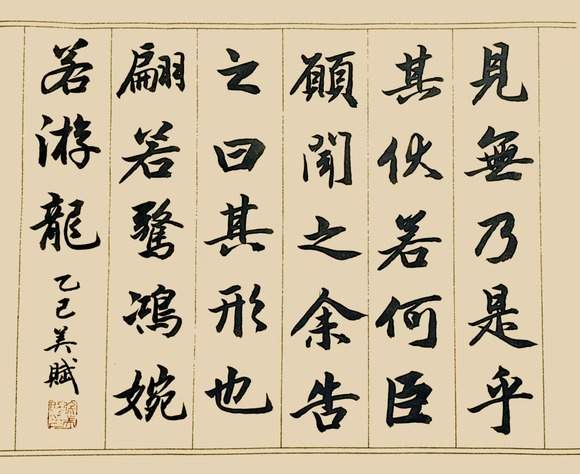 見無乃是乎
其伏若何臣
願聞之余告
之曰其形也
翩若驚鴻婉
若游龍
乙巳美賦